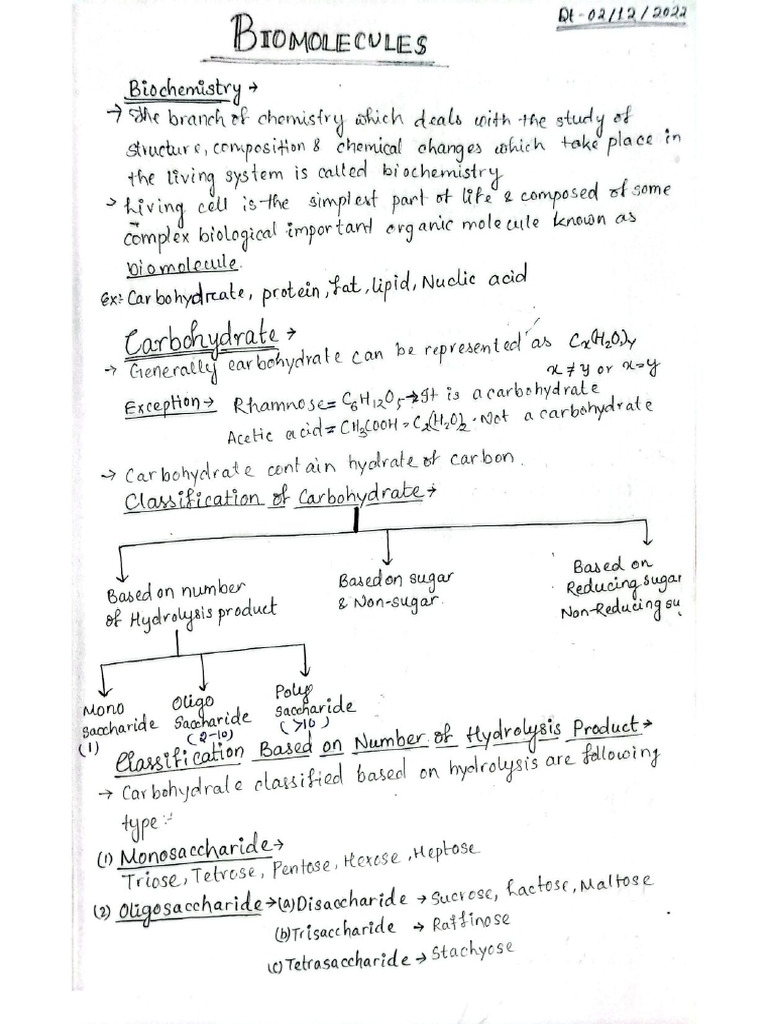 Dt - 02/12/2022
BIOMOLECULES
Biochemistry →
→ The branch of chemistry which deals with the study of
structure, composition & chemical changes which take place in
the living system is called biochemistry
→ Living cell is the simplest part of life & composed of some
complex biological important organic molecule known as
biomolecule.
Ex:- Carbohydrate, protein, fat, lipid, Nuclic acid
Carbohydrate →
→ Generally carbohydrate can be represented as Cx(H₂O)y
x ≠ y or x = y
Exception → Rhamnose = C₆H₁₂O₅ → It is a carbohydrate
Acetic acid = CH₃COOH = C₂(H₂O)₂. Not a carbohydrate
→ Carbohydrate contain hydrate of carbon.
Classification of Carbohydrate →
Based on number
of Hydrolysis product
Based on sugar
& Non-sugar.
Based on
Reducing sugar
Non-Reducing su
Mono
Saccharide
(1)
Oligo
Saccharide
(2-10)
Poly
Saccharide
(>10)
Classification Based on Number of Hydrolysis Product →
→ Carbohydrale classified based on hydrolysis are following
type :-
(1) Monosaccharide →
Triose, Tetrose, Pentose, Hexose, Heptose
(2) Oligosaccharide → (a) Disaccharide → Sucrose, Lactose, Maltose
(b) Trisaccharide → Raffinose
(c) Tetrasaccharide → Stachyose